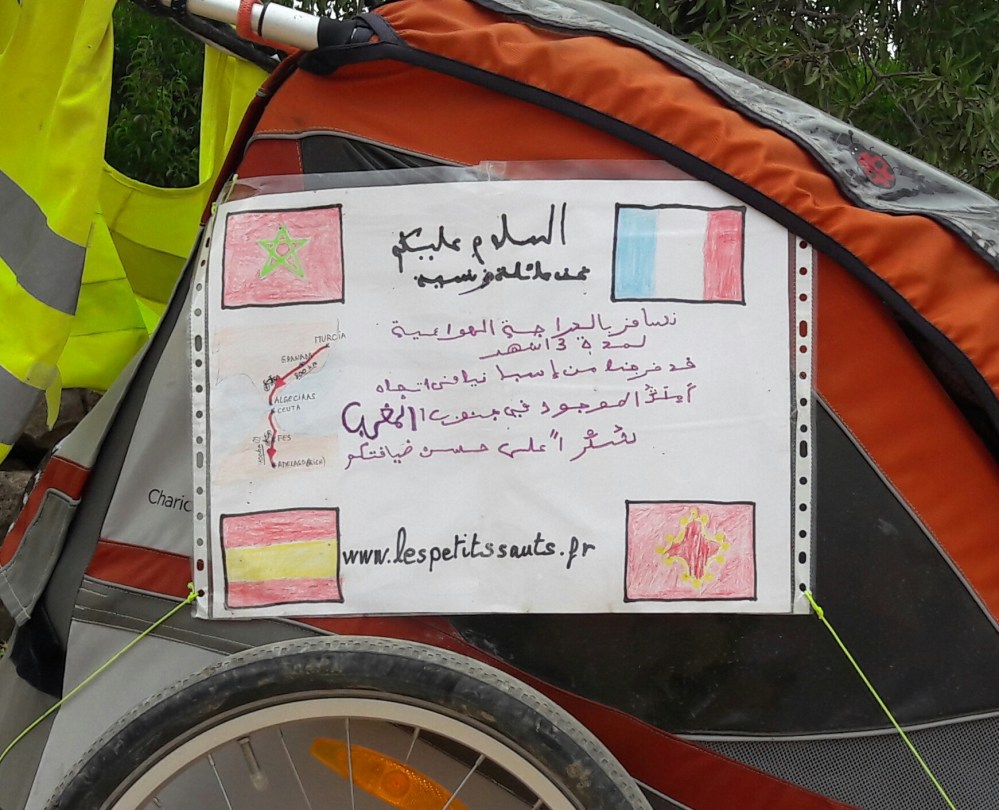 السلام عليكم
نحن عائلة فرنسية
نسافر بالدراجة الهوائية
لمدة 3 اشهر
قد خرجنا من إسبانيا في اتجاه
أملاكو الموجود في جنوب المغرب
شكراً على حسن ضيافتكم
MURCIA
GRANADA
ALGECIRAS
CEUTA
FES
www.lespetitssauts.fr
Charic